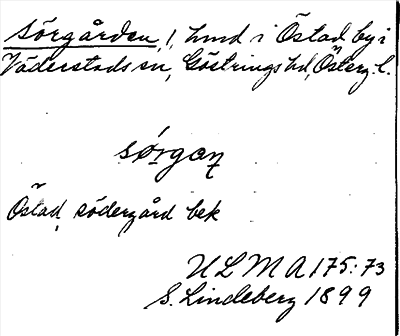 Sörgården, l, hmd i Östad by i
Väderstads sn, Göstrings hd, Österg. l.
sørgaṇ
Östad, södergård bek
ULMA 175:73
S. Lindeberg 1899